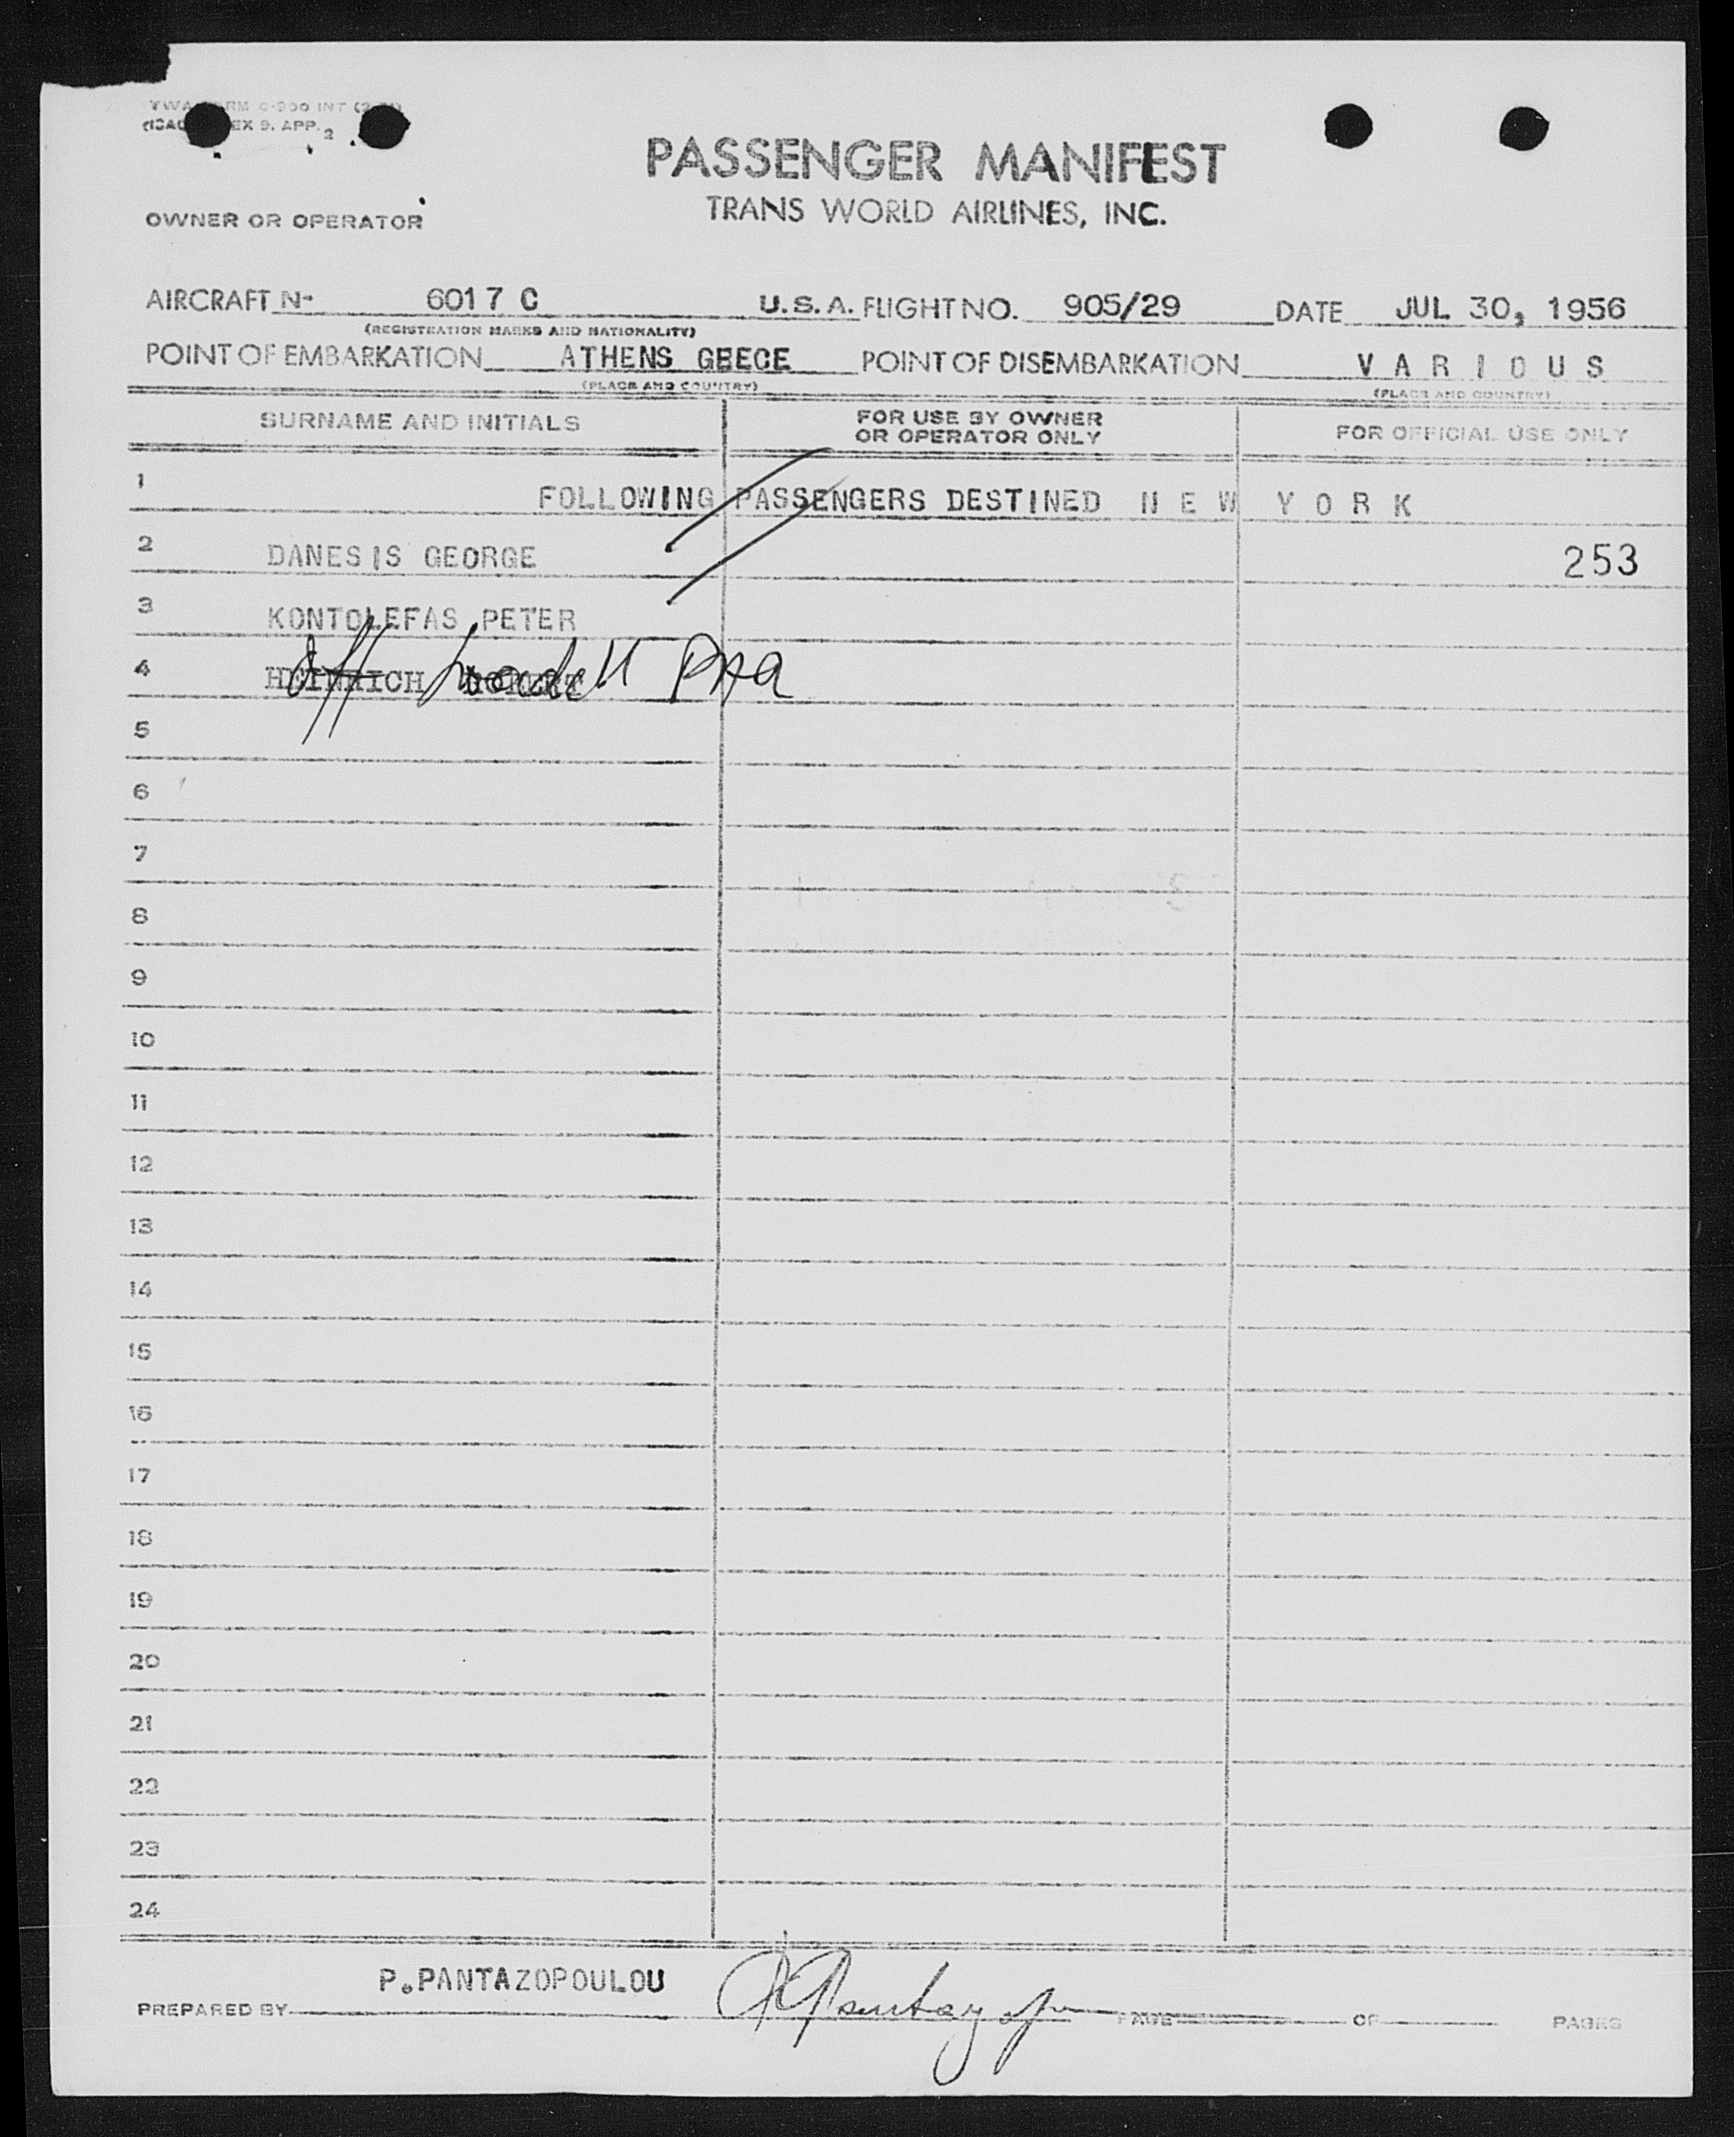 TWA FORM 0-900 INT
EX 9. APP. 2
PASSENGER MANIFEST
TRANS WORLD AIRLINES, INC.
OWNER OR OPERATOR
AIRCRAFT N- 6017 C U.S.A. FLIGHT NO. 905/29 DATE JUL 30, 1956
(REGISTRATION MARKS AND NATIONALITY)
POINT OF EMBARKATION ATHENS GRECE POINT OF DISEMBARKATION V A R I O U S
(PLACE AND COUNTRY) (PLACE AND COUNTRY)
SURNAME AND INITIALS FOR USE BY OWNER OR OPERATOR ONLY FOR OFFICIAL USE ONLY
1 FOLLOWING PASSENGERS DESTINED N E W Y O R K
2 DANESIS GEORGE 253
3 KONTOLEFAS PETER
4 HEINRICH Off
5
6
7
8
9
10
11
12
13
14
15
16
17
18
19
20
21
22
23
24
P.PANTAZOPOULOU
PREPARED BY PAGE OF PAGES